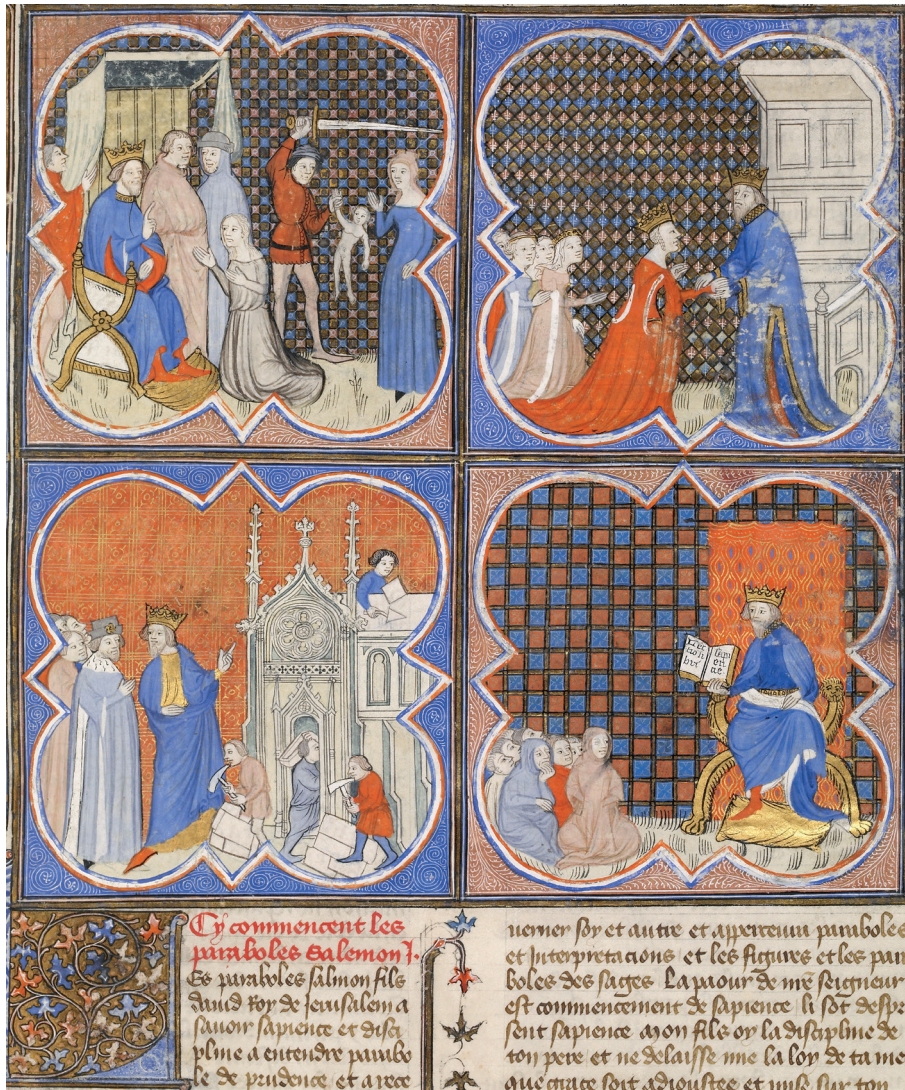 Cy commencent les
paraboles salemon J.
Es paraboles salmon fils
dauid Roy de Jerusalem a
sauoir sapience et disci
pline a entendre parabo
le de prudence et a rece
uerner soy et autre et appercevra paraboles
et Interpretacions et les figures et les para
boles des sages La paour de nre seigneur
est commencement de sapience li sot despi
sent sapience Mon fils oy la discipline de
ton pere et ne delaisse mie la loy de ta me
que grace soit adioustee et mise sus ton